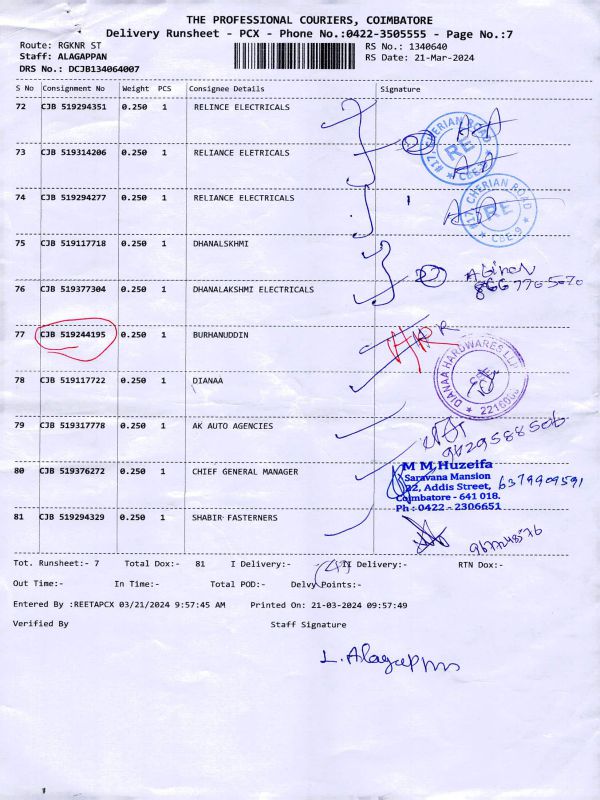 THE PROFESSIONAL COURIERS, COIMBATORE
Delivery Runsheet - PCX - Phone No.:0422-3505555 - Page No.:7
Route: RGKNR ST RS No.: 1340640
Staff: ALAGAPPAN RS Date: 21-Mar-2024
DRS No.: DCJB134064007
S No Consignment No Weight PCS Consignee Details Signature
72 CJB 519294351 0.250 1 RELINCE ELECTRICALS
#17 CHERIAN ROAD RE CBE-9
73 CJB 519314206 0.250 1 RELIANCE ELETRICALS
74 CJB 519294277 0.250 1 RELIANCE ELECTRICALS
#17 CHERIAN ROAD RE CBE-9
75 CJB 519117718 0.250 1 DHANALSKHMI
76 CJB 519377304 0.250 1 DHANALAKSHMI ELECTRICALS
77 CJB 519244195 0.250 1 BURHANUDDIN
DIANAA HARDWARES LLP
78 CJB 519117722 0.250 1 DIANAA
79 CJB 519317778 0.250 1 AK AUTO AGENCIES
9629588506
80 CJB 519376272 0.250 1 CHIEF GENERAL MANAGER
M M.Huzeifa
Saravana Mansion
32, Addis Street, 6379909591
Coimbatore - 641 018.
Ph : 0422 - 2306651
81 CJB 519294329 0.250 1 SHABIR FASTERNERS
Tot. Runsheet:- 7 Total Dox:- 81 I Delivery:- II Delivery:- RTN Dox:-
Out Time:- In Time:- Total POD:- Delvy Points:-
Entered By :REETAPCX 03/21/2024 9:57:45 AM Printed On: 21-03-2024 09:57:49
Verified By Staff Signature
L. Alagappan